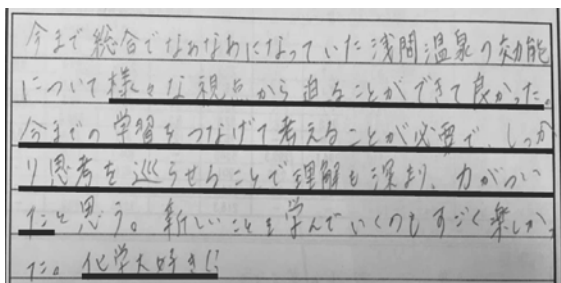 今まで総合でなあなあになっていた浅間温泉の効能
について様々な視点から迫ることができて良かった。
今までの学習をつなげて考えることが必要で、しっか
り思考を巡らせることで理解も深まり、力がつい
たと思う。新しいことを学んでいくのもすごく楽しかっ
た。化学大好き!!